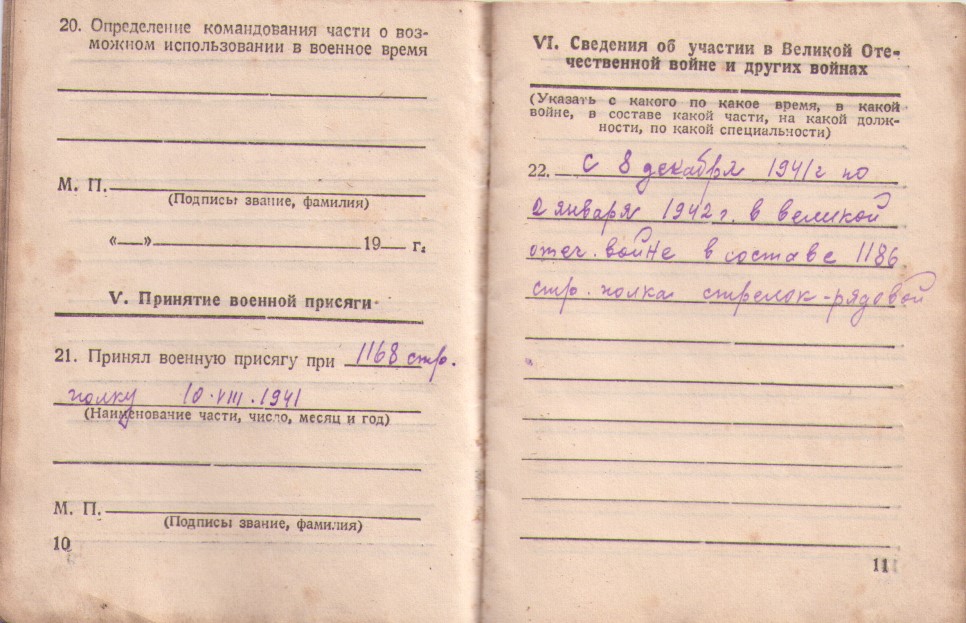 20. Определение командования части о воз-
можном использовании в военное время
М. П.
(Подпись звание, фамилия)
«—» 19— г.
V. Принятие военной присяги
21. Принял военную присягу при 1168 стр.
полку 10.VIII.1941
(Наименование части, число, месяц и год)
М. П.
(Подпись звание, фамилия)
10
VI. Сведения об участии в Великой Оте-
чественной войне и других войнах
(Указать с какого по какое время, в какой
войне, в составе какой части, на какой долж-
ности, по какой специальности)
22. С 8 декабря 1941г по
2 января 1942 г. в великой
отеч. войне в составе 1186
стр. полка стрелок-рядовой
11